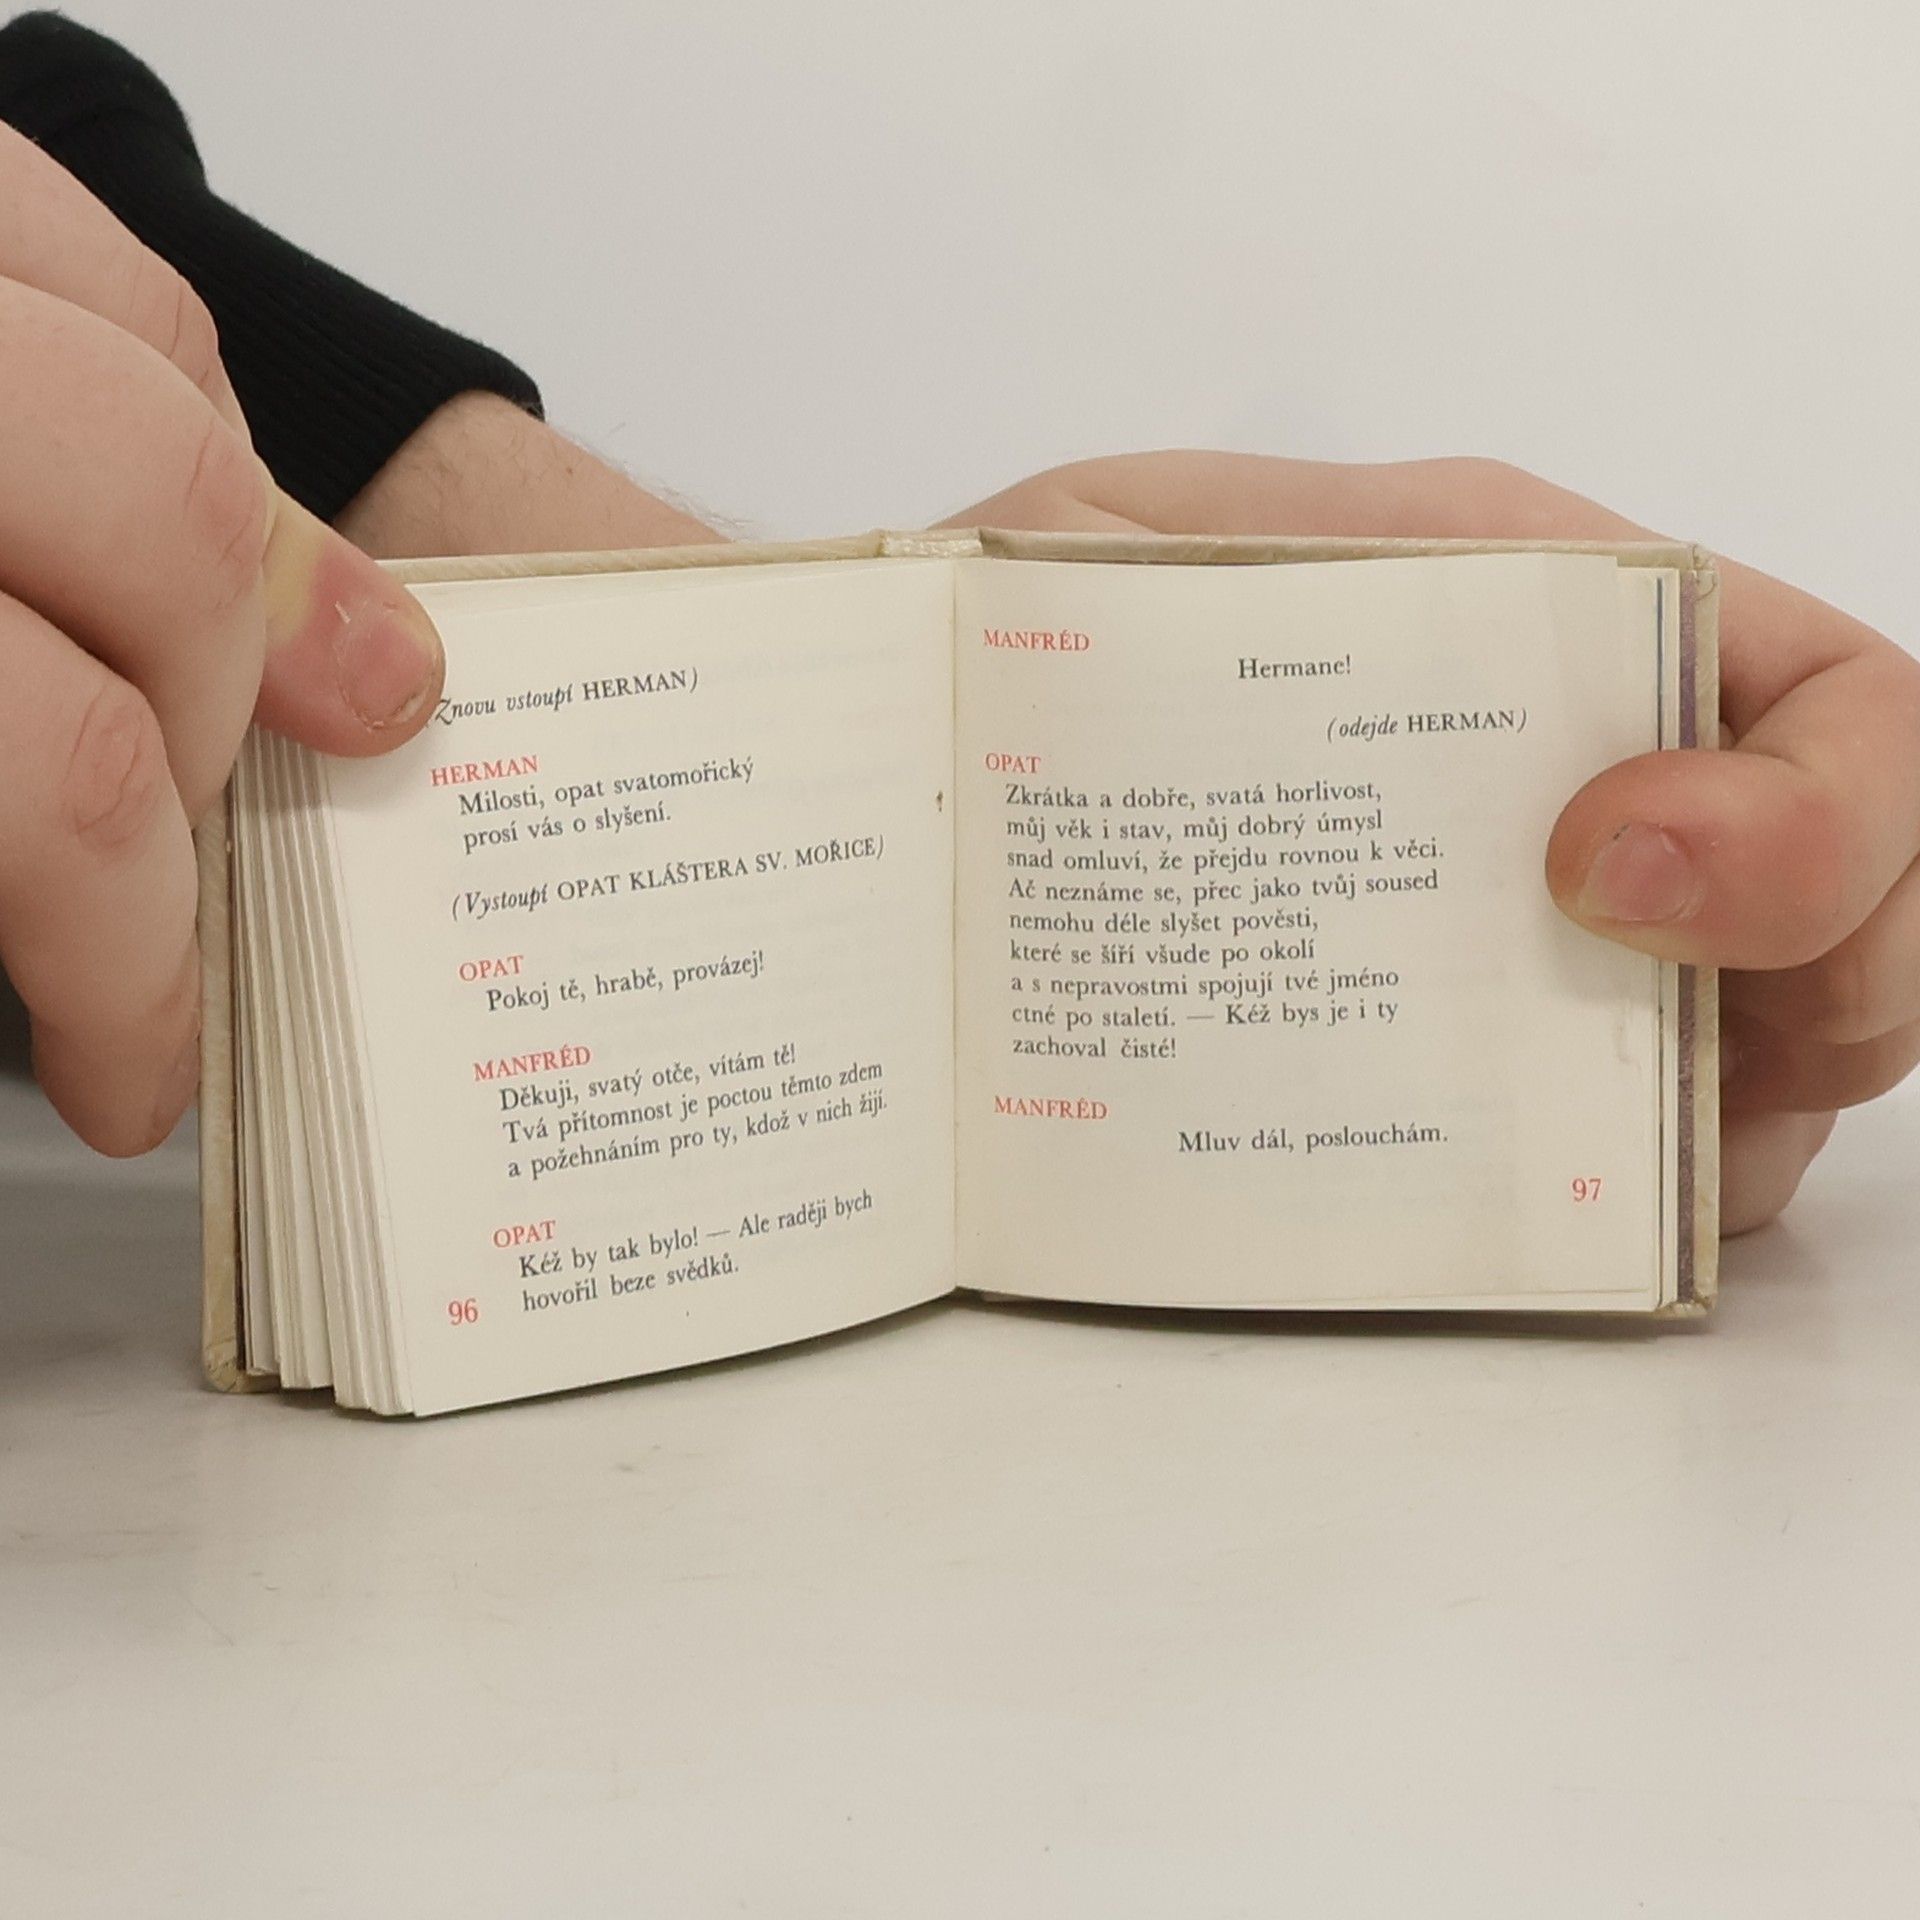 (Znovu vstoupí HERMAN)
HERMAN
Milosti, opat svatomořický
prosí vás o slyšení.
(Vystoupí OPAT KLÁŠTERA SV. MOŘICE)
OPAT
Pokoj tě, hrabě, provázej!
MANFRÉD
Děkuji, svatý otče, vítám tě!
Tvá přítomnost je poctou těmto zdem
a požehnáním pro ty, kdož v nich žijí.
OPAT
Kéž by tak bylo! — Ale raději bych
hovořil beze svědků.
96
MANFRÉD
Hermane!
(odejde HERMAN)
OPAT
Zkrátka a dobře, svatá horlivost,
můj věk i stav, můj dobrý úmysl
snad omluví, že přejdu rovnou k věci.
Ač neznáme se, přec jako tvůj soused
nemohu déle slyšet pověsti,
které se šíří všude po okolí
a s nepravostmi spojují tvé jméno
ctné po staletí. — Kéž bys je i ty
zachoval čisté!
MANFRÉD
Mluv dál, poslouchám.
97